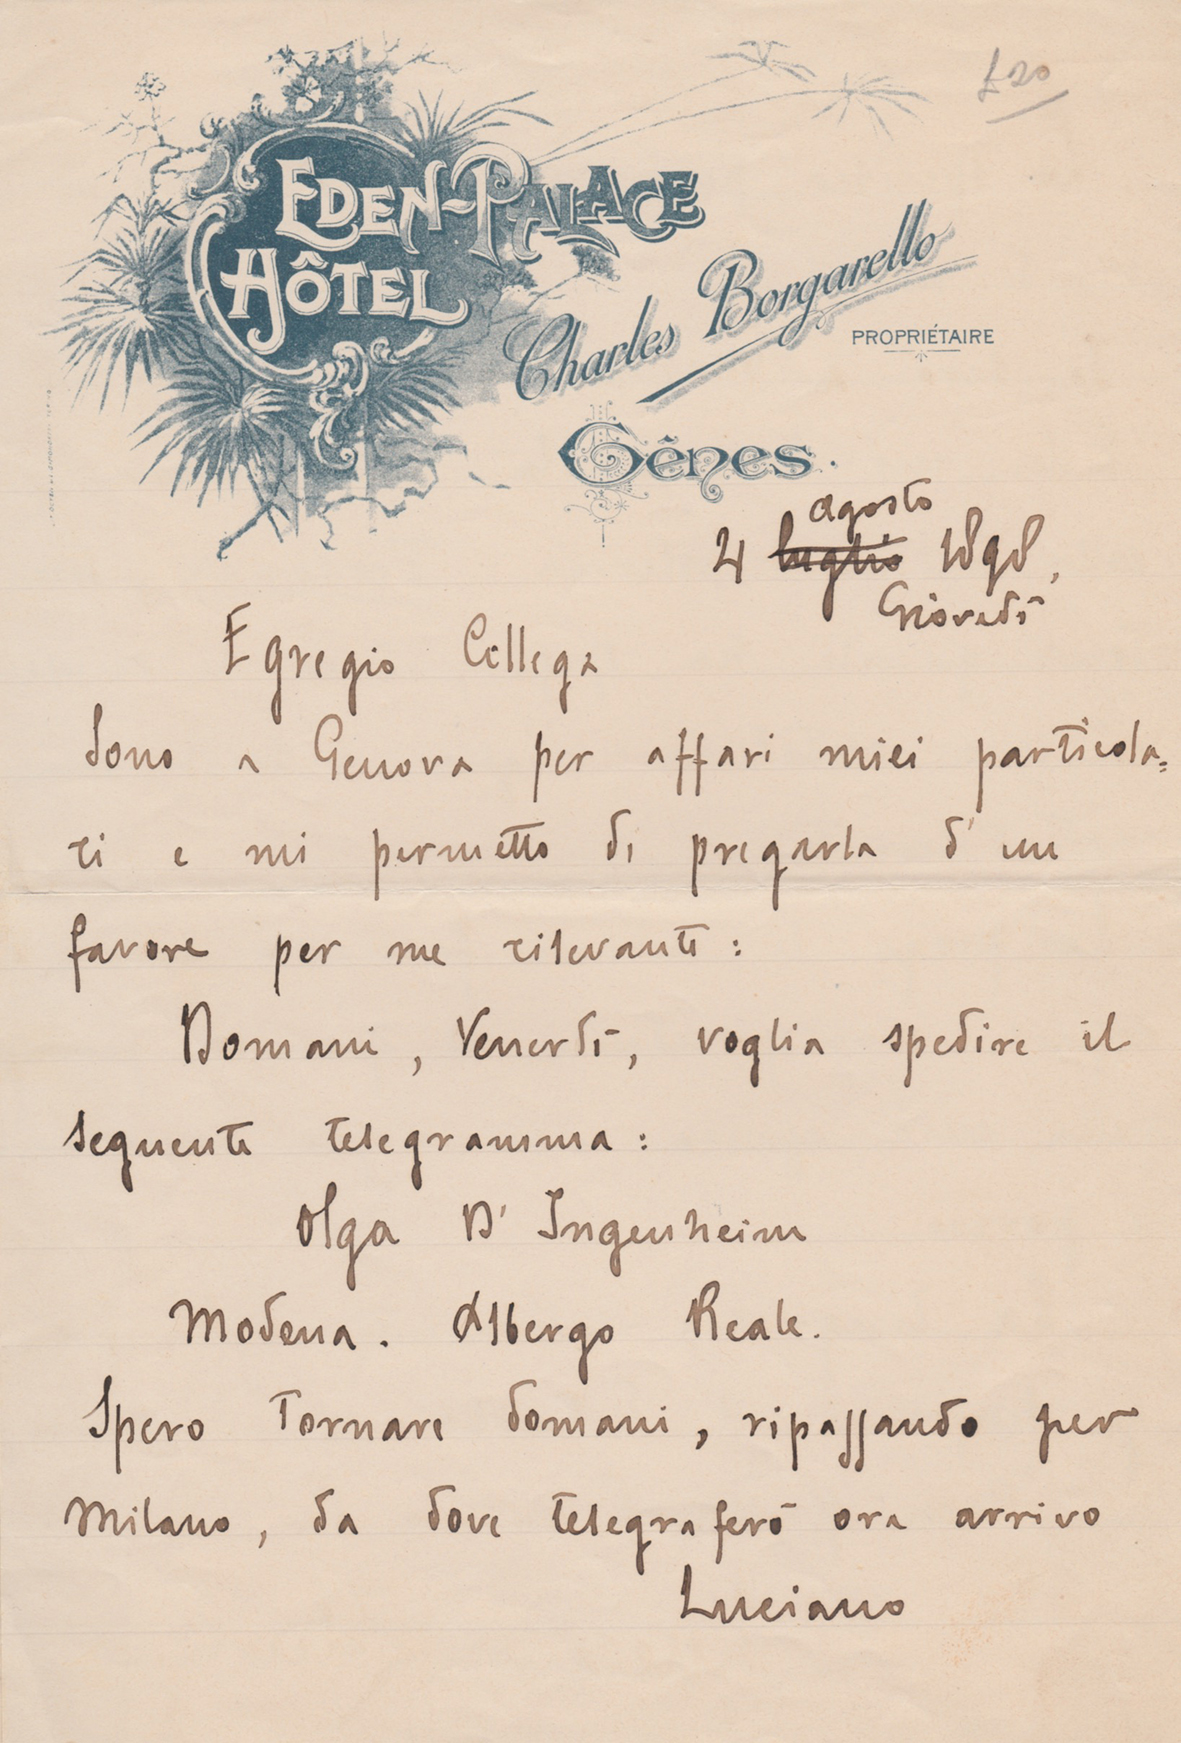 £20
EDEN-PALACE
HÔTEL
Charles Borgarello
PROPRIÉTAIRE
Gênes.
agosto
4 luglio 1898,
Giovedì
Egregio Collega
Sono a Genova per affari miei particola=
ri e mi permetto di pregarla d'un
favore per me rilevante:
Domani, Venerdì, voglia spedire il
seguente telegramma:
Olga D'Ingenheim
Modena. Albergo Reale.
Spero tornare domani, ripassando per
Milano, da dove telegraferò ora arrivo
Luciano